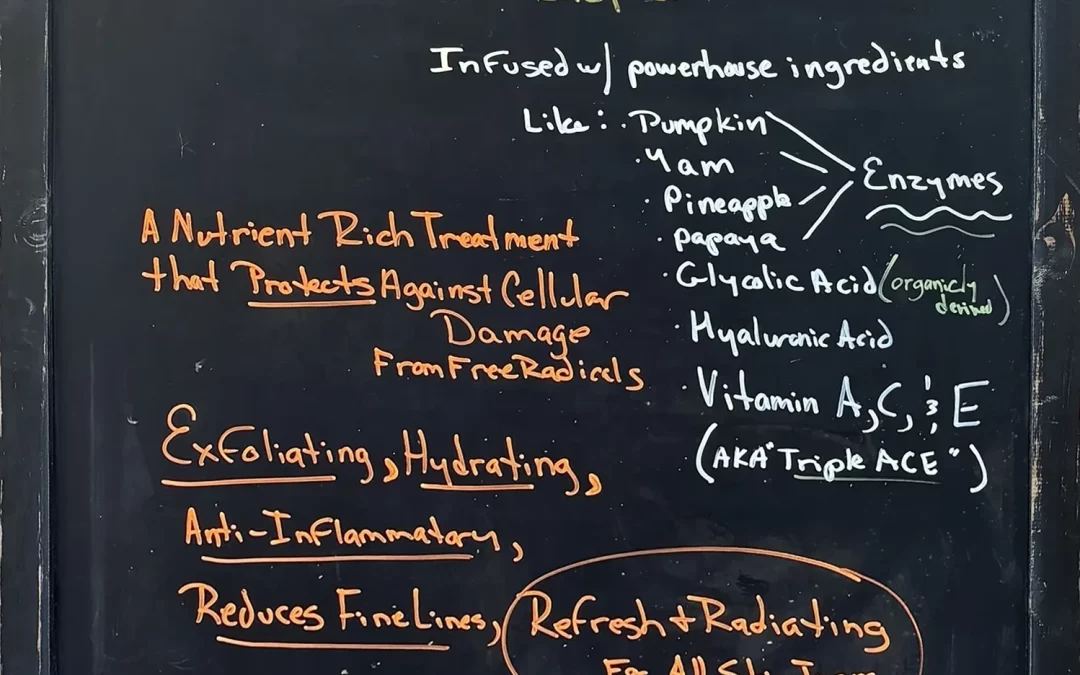 Infused w/ powerhouse ingredients
Like: · Pumpkin
· Yam
· Pineapple
· Papaya
Enzymes
· Glycolic Acid (organicly
derived)
· Hyaluronic Acid
· Vitamin A, C, & E
(AKA "Triple ACE")
A Nutrient Rich Treatment
that Protects Against Cellular
Damage
From Free Radicals
Exfoliating, Hydrating,
Anti-Inflammatory,
Reduces Fine Lines,
Refresh + Radiating
For All